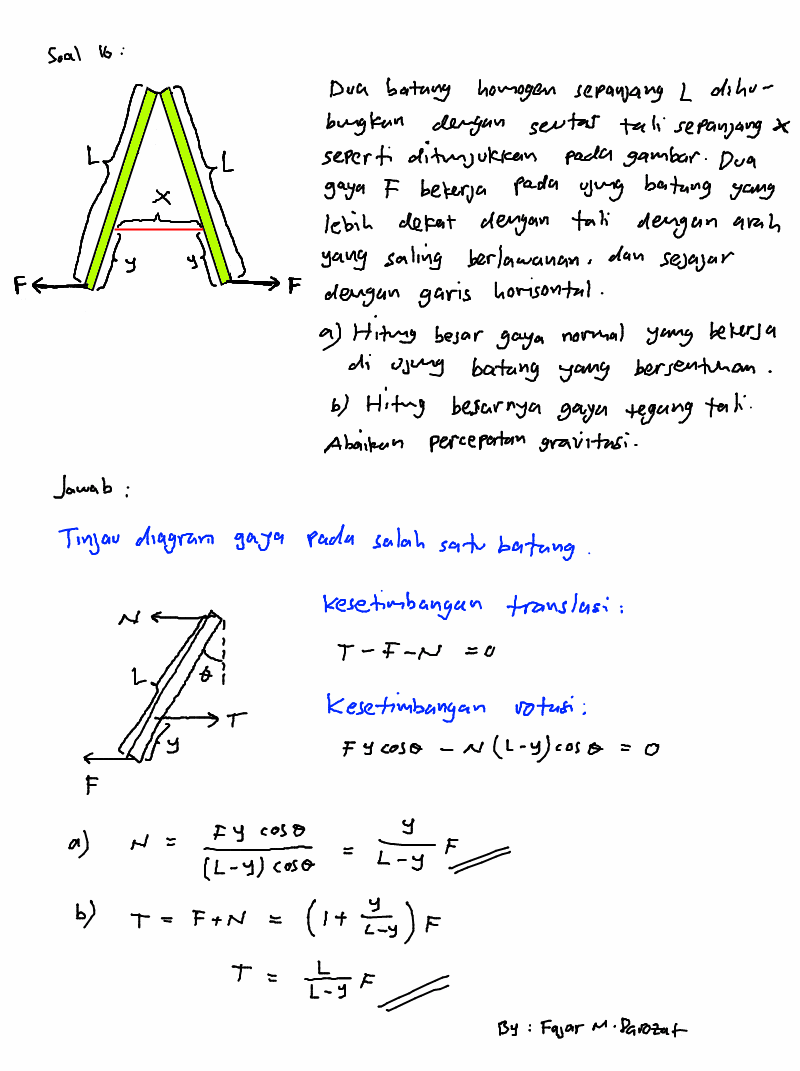 Soal 16 :
Dua batang homogen sepanjang L dihu-
bungkan dengan seutas tali sepanjang x
seperti ditunjukkan pada gambar. Dua
gaya F bekerja pada ujung batang yang
lebih dekat dengan tali dengan arah
yang saling berlawanan, dan sejajar
dengan garis horisontal.
a) Hitung besar gaya normal yang bekerja
di ujung batang yang bersentuhan.
b) Hitung besarnya gaya tegang tali.
Abaikan percepatan gravitasi.
L
L
x
y
y
F
F
Jawab :
Tinjau diagram gaya pada salah satu batang.
N
L
θ
T
y
F
Kesetimbangan translasi :
T - F - N = 0
Kesetimbangan rotasi :
F y cos θ - N (L-y) cos θ = 0
a) N = F y cos θ / (L-y) cos θ = y / L-y F
b) T = F + N = (1 + y / L-y) F
T = L / L-y F
By : Fajar M.